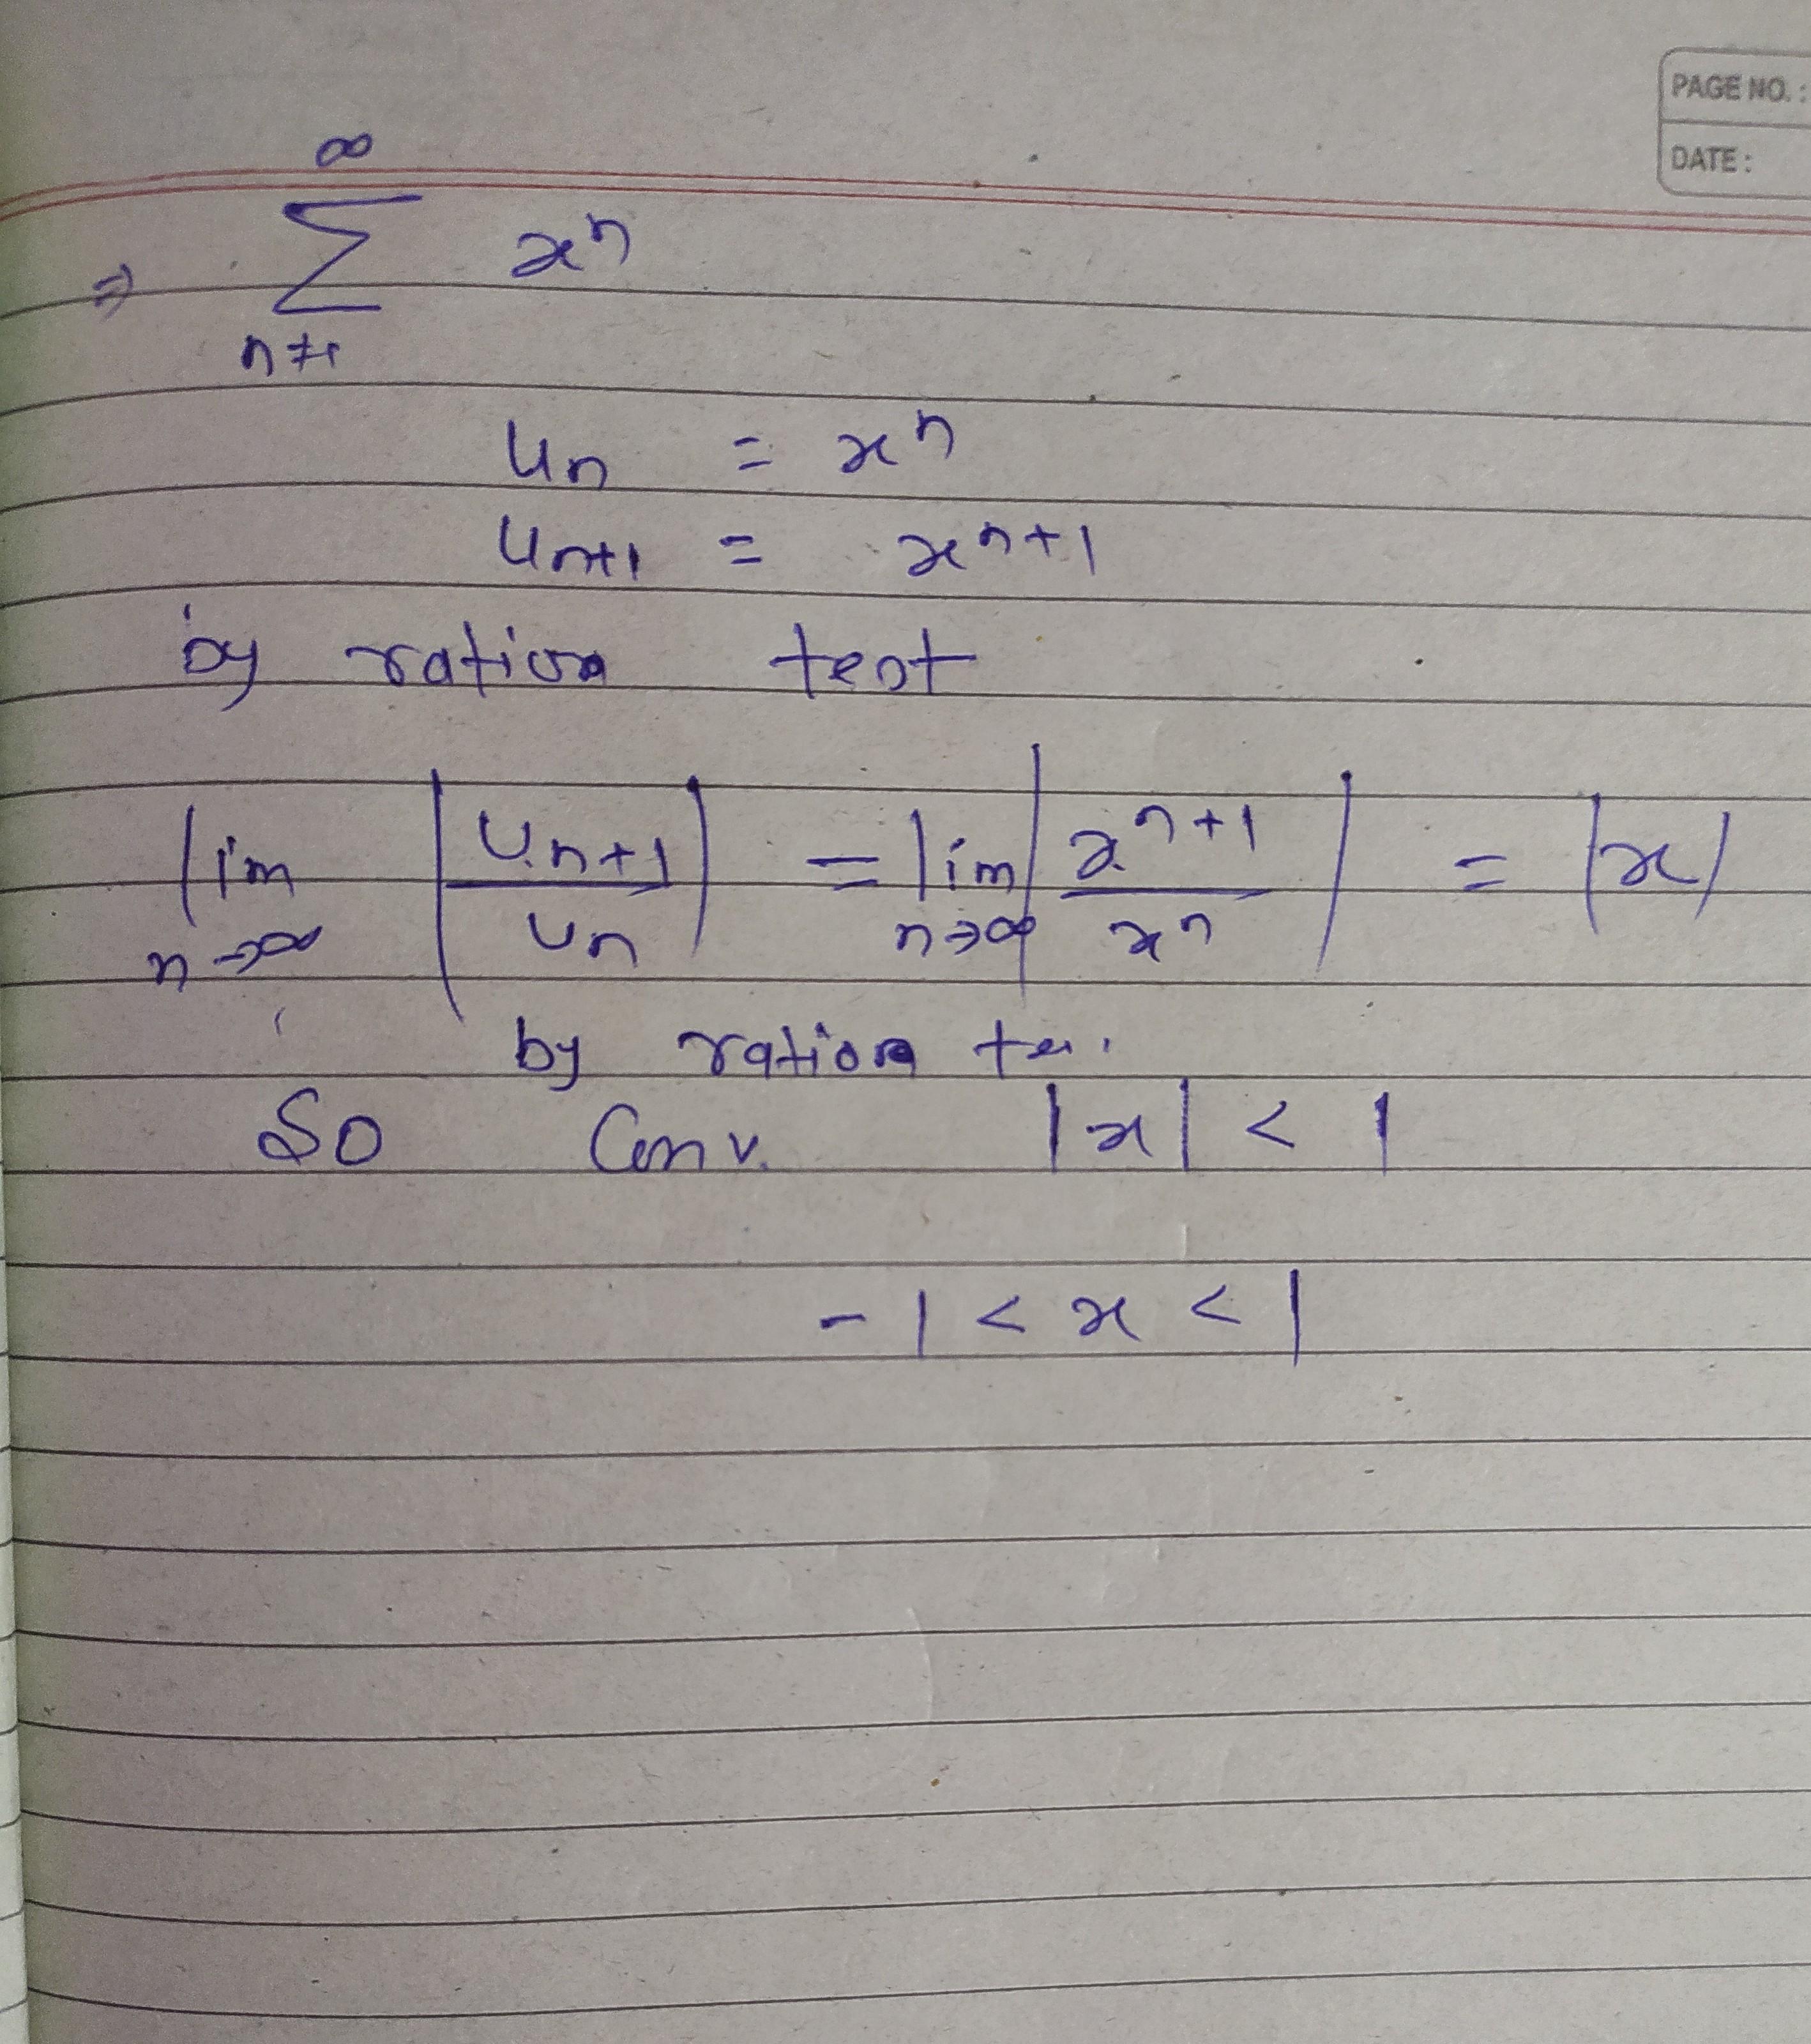 PAGE NO. :
DATE :
∞
⇒ ∑ xⁿ
Un = xⁿ
Un+1 = xⁿ⁺¹
by ration test
lim n→∞ |Un+1 / Un| = lim n→∞ |xⁿ⁺¹ / xⁿ| = |x|
by ration
So Conv. |x| < 1
-1 < x < 1